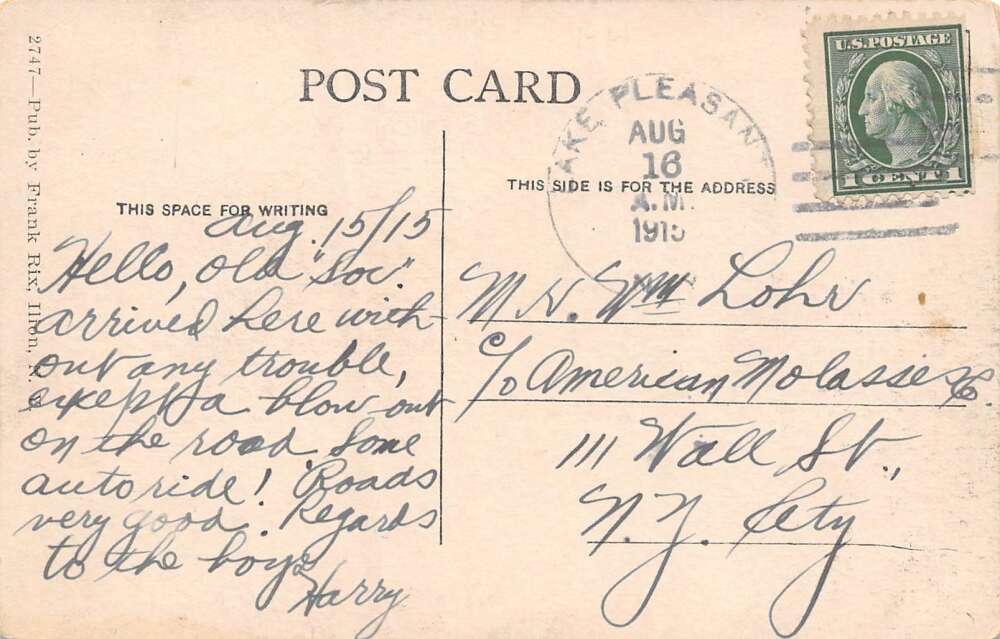 2747—Pub. by Frank Rix, Ilion, N. Y.
POST CARD
U.S. POSTAGE
1 CENT 1
LAKE PLEASANT
AUG
16
A.M.
1915
N.Y.
THIS SPACE FOR WRITING
THIS SIDE IS FOR THE ADDRESS
Aug. 15/15
Hello, Old "Soc".
arrived here with-
out any trouble,
except a blow-out
on the road. Some
auto ride! Roads
very good. Regards
to the boys
Harry
Wm Lohr
c/o American Molasses Co.
111 Wall St.,
N.Y. City